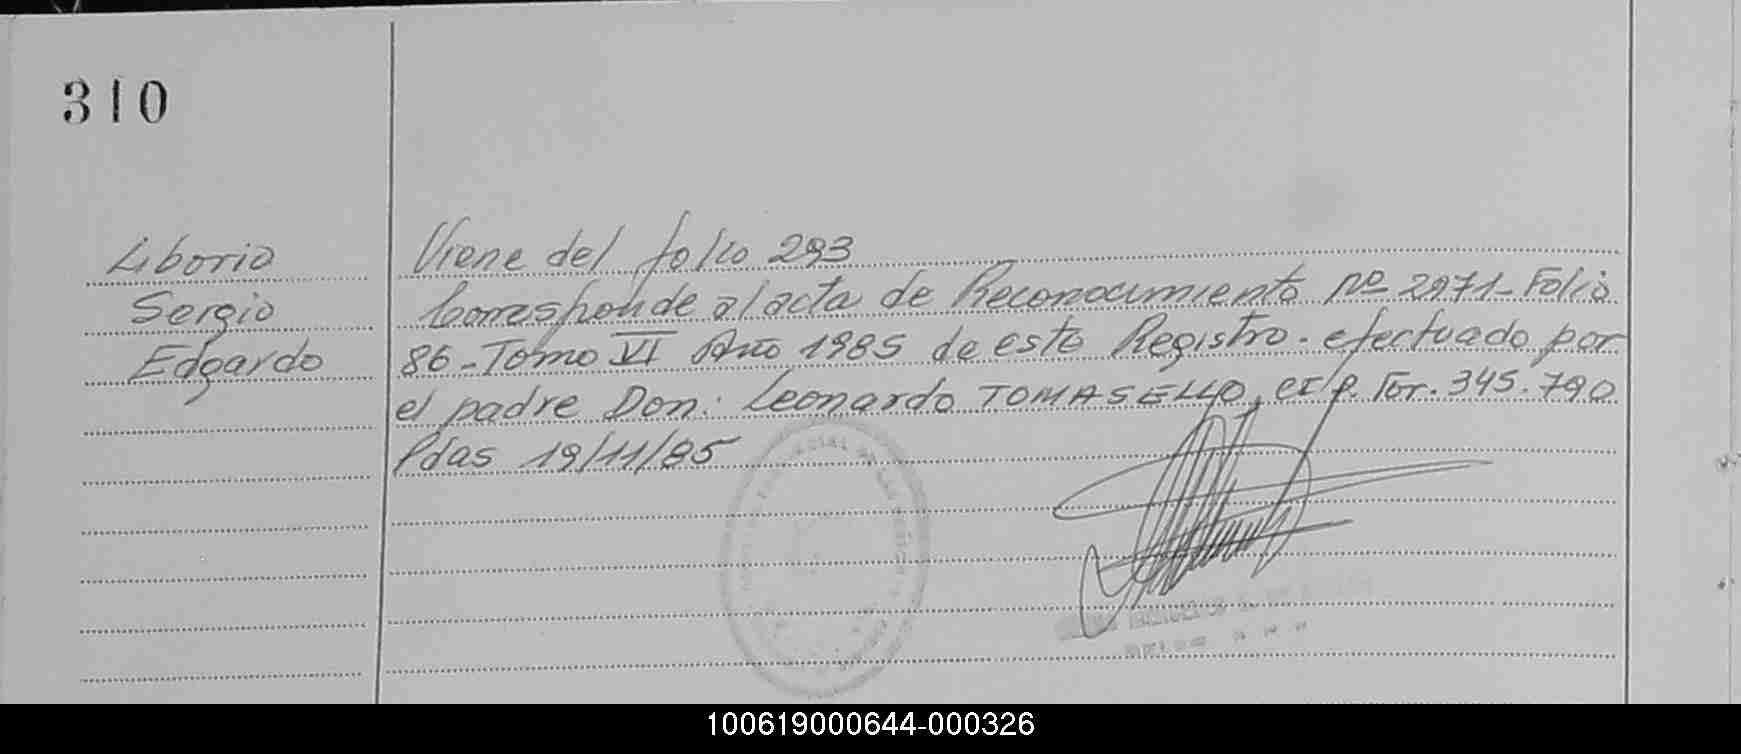 310
Liborio
Sergio
Edgardo
Viene del folio 293
Corresponde al acta de Reconocimiento Nº 2971- Folio
86- Tomo VI Año 1985 de este Registro. efectuado por
el padre Don: Leonardo TOMASELLO, CI/P. For. 345.790
Pdas 19/11/85
100619000644-000326